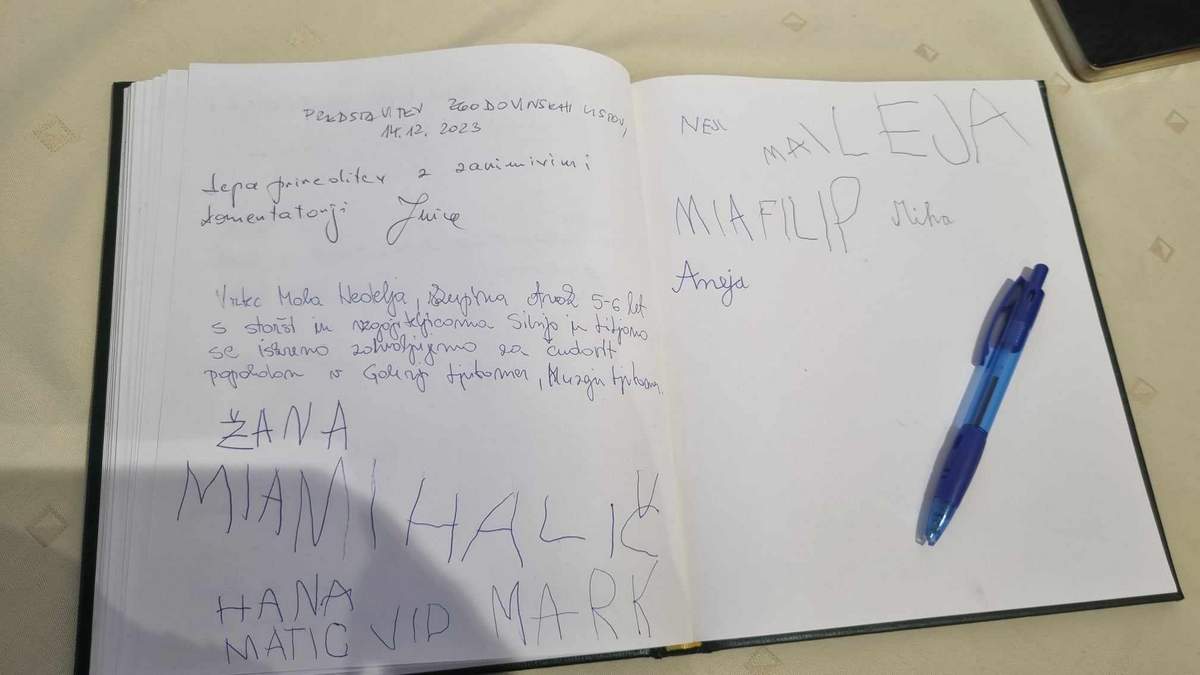 PREDSTAVITEV ZGODOVINSKIH LISTOV,
14.12.2023
Lepa prireditev z zanimivimi
komentatorji
Vrtec Mala Nedelja, skupina otrok 5-6 let
s starši in vzgojiteljicama Silvijo in Liljano
se iskreno zahvaljujemo za čudovit
popoldan v Galeriji Ljutomer, Muzeju Ljutomer.
ŽANA
MIA MIHALIČ
HANA
MATIC VID MARK
NEJC
MAI LEJA
MIA FILIP Miha
Aneja